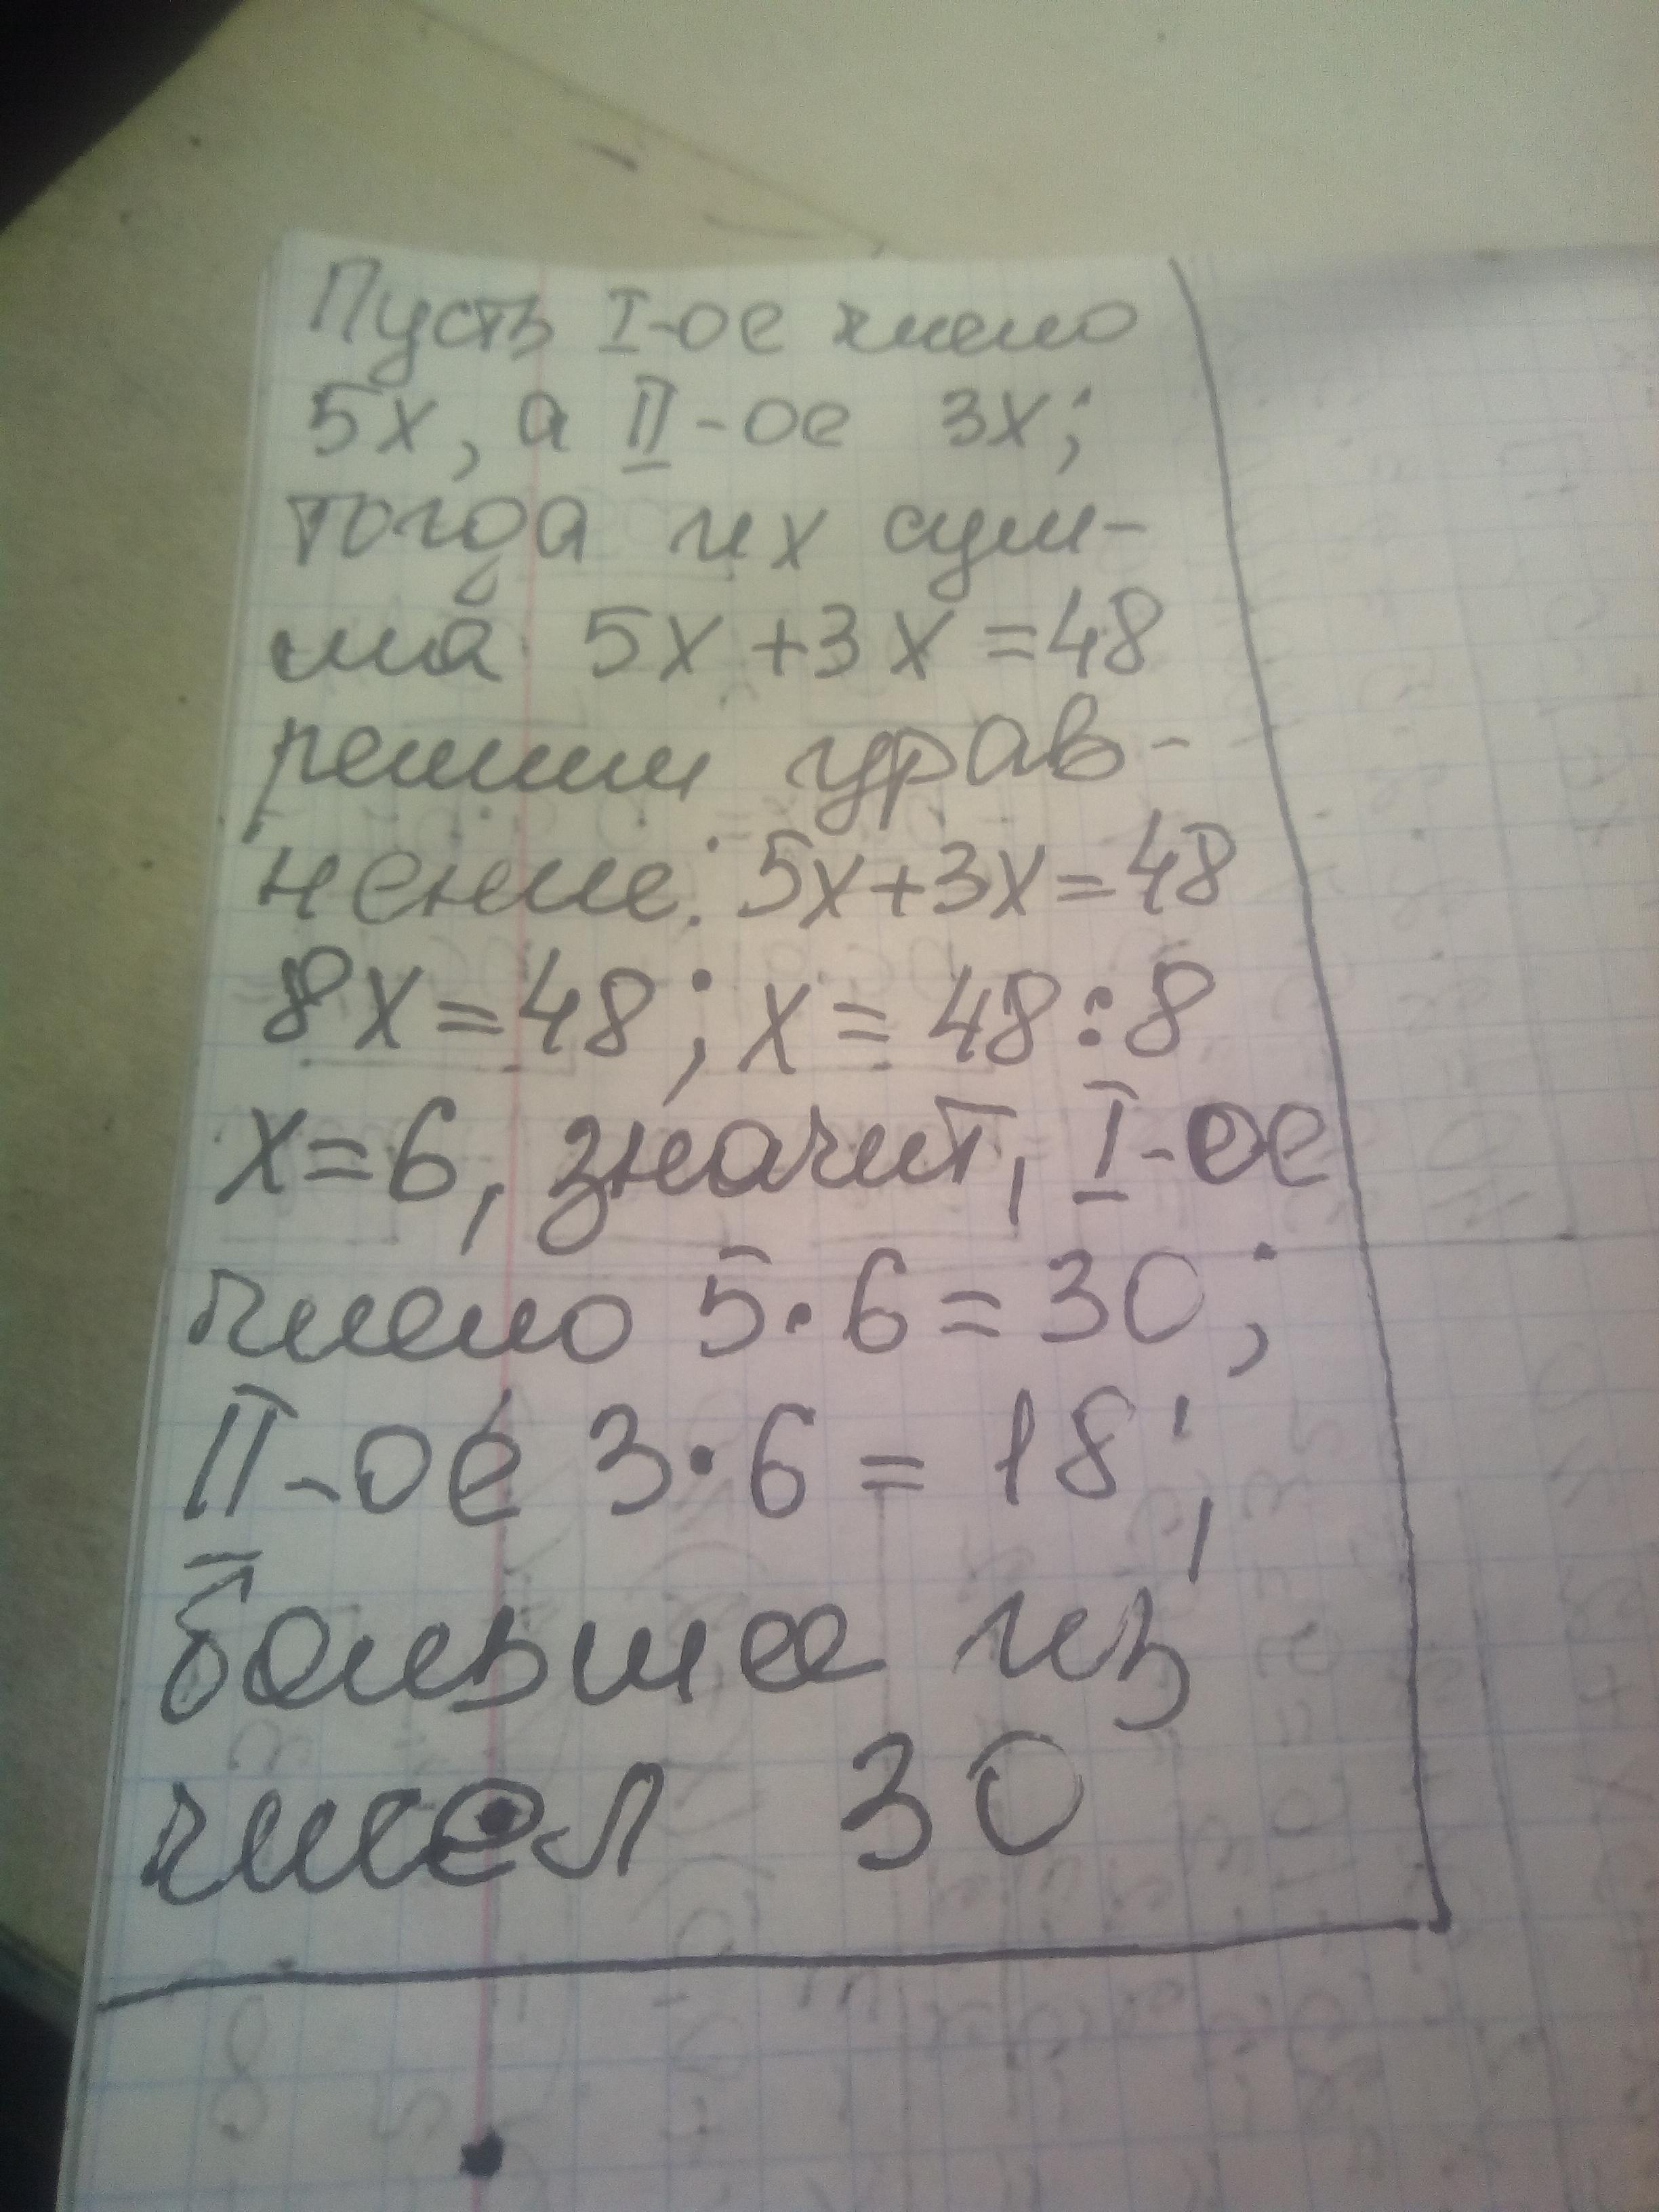 Пусть I-ое число
5х, а II-ое 3х;
тогда их сум-
ма 5х + 3х = 48
решим урав-
нение: 5х+3х=48
8х=48; х = 48:8
х=6, значит, I-ое
число 5·6=30;
II-ое 3·6 = 18;
большее из
чисел 30